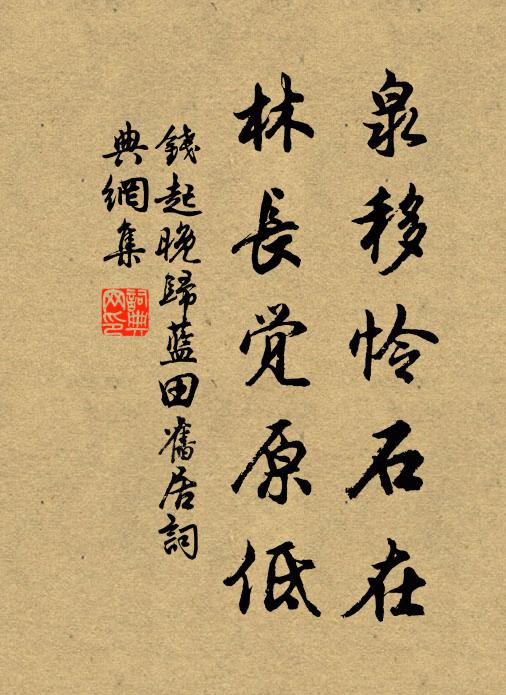 泉移怜石在
林長覚原低
錢起晚歸藍田舊居詞
典網集
詞典
网印